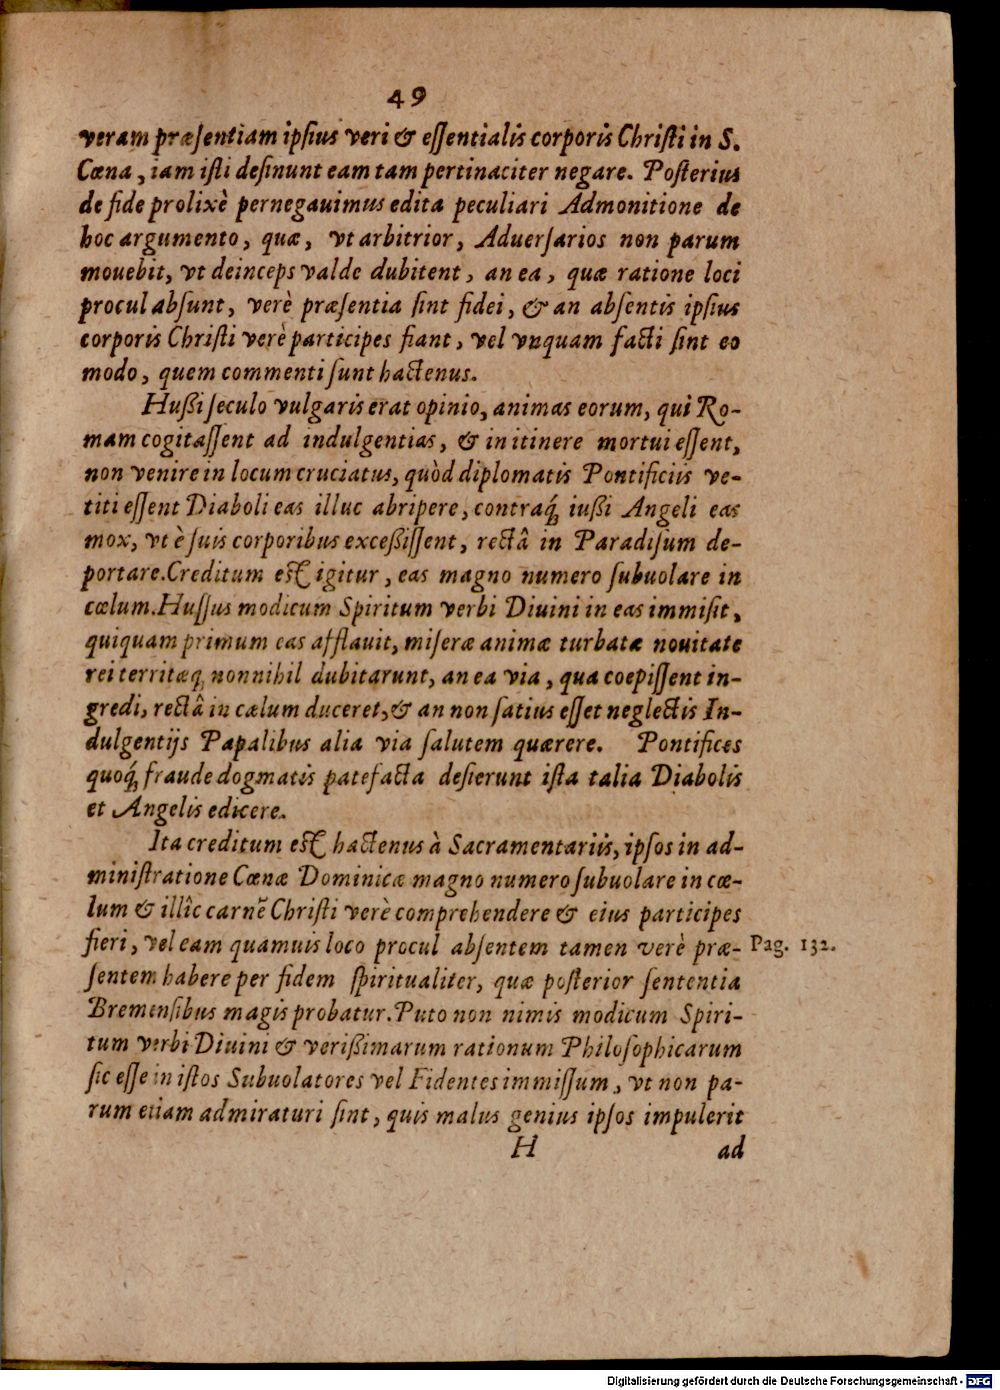 49
veram præſentiam ipſius veri & eſſentialis corporis Chriſti in S.
Cœna, iam iſti deſinunt eam tam pertinaciter negare. Poſterius
de fide prolixè pernegauimus edita peculiari Admonitione de
hoc argumento, quæ, vt arbitrior, Aduerſarios non parum
mouebit, vt deinceps valde dubitent, an ea, quæ ratione loci
procul abſunt, verè præſentia ſint fidei, & an abſentis ipſius
corporis Chriſti verè participes fiant, vel vnquam facti ſint eo
modo, quem commenti ſunt hactenus.
Hußi ſeculo vulgaris erat opinio, animas eorum, qui Ro-
mam cogitaſſent ad indulgentias, & in itinere mortui eſſent,
non venire in locum cruciatus, quòd diplomatis Pontificiis ve-
titi eſſent Diaboli eas illuc abripere, contraq́; iußi Angeli eas
mox, vt è ſuis corporibus exceßiſſent, rectâ in Paradiſum de-
portare. Creditum eſt igitur, eas magno numero ſubuolare in
cœlum. Huſſus modicum Spiritum verbi Diuini in eas immiſit,
qui quam primum eas afflauit, miſeræ animæ turbatæ nouitate
rei territæq; nonnihil dubitarunt, an ea via, qua coepiſſent in-
gredi, rectâ in cælum duceret, & an non ſatius eſſet neglectis In-
dulgentijs Papalibus alia via ſalutem quærere. Pontifices
quoq́; fraude dogmatis patefacta deſierunt iſta talia Diabolis
et Angelis edicere.
Ita creditum eſt hactenus à Sacramentariis, ipſos in ad-
miniſtratione Cœnæ Dominicæ magno numero ſubuolare in cœ-
lum & illîc carnẽ Chriſti verè comprehendere & eius participes
fieri, vel eam quamuis loco procul abſentem tamen verè præ- Pag. 132.
ſentem habere per fidem ſpiritualiter, quæ poſterior ſententia
Bremenſibus magis probatur. Puto non nimis modicum Spiri-
tum verbi Diuini & verißimarum rationum Philoſophicarum
ſic eſſe in iſtos Subuolatores vel Fidentes immiſſum, vt non pa-
rum etiam admiraturi ſint, quis malus genius ipſos impulerit
H ad
Digitalisierung gefördert durch die Deutsche Forschungsgemeinschaft - DFG